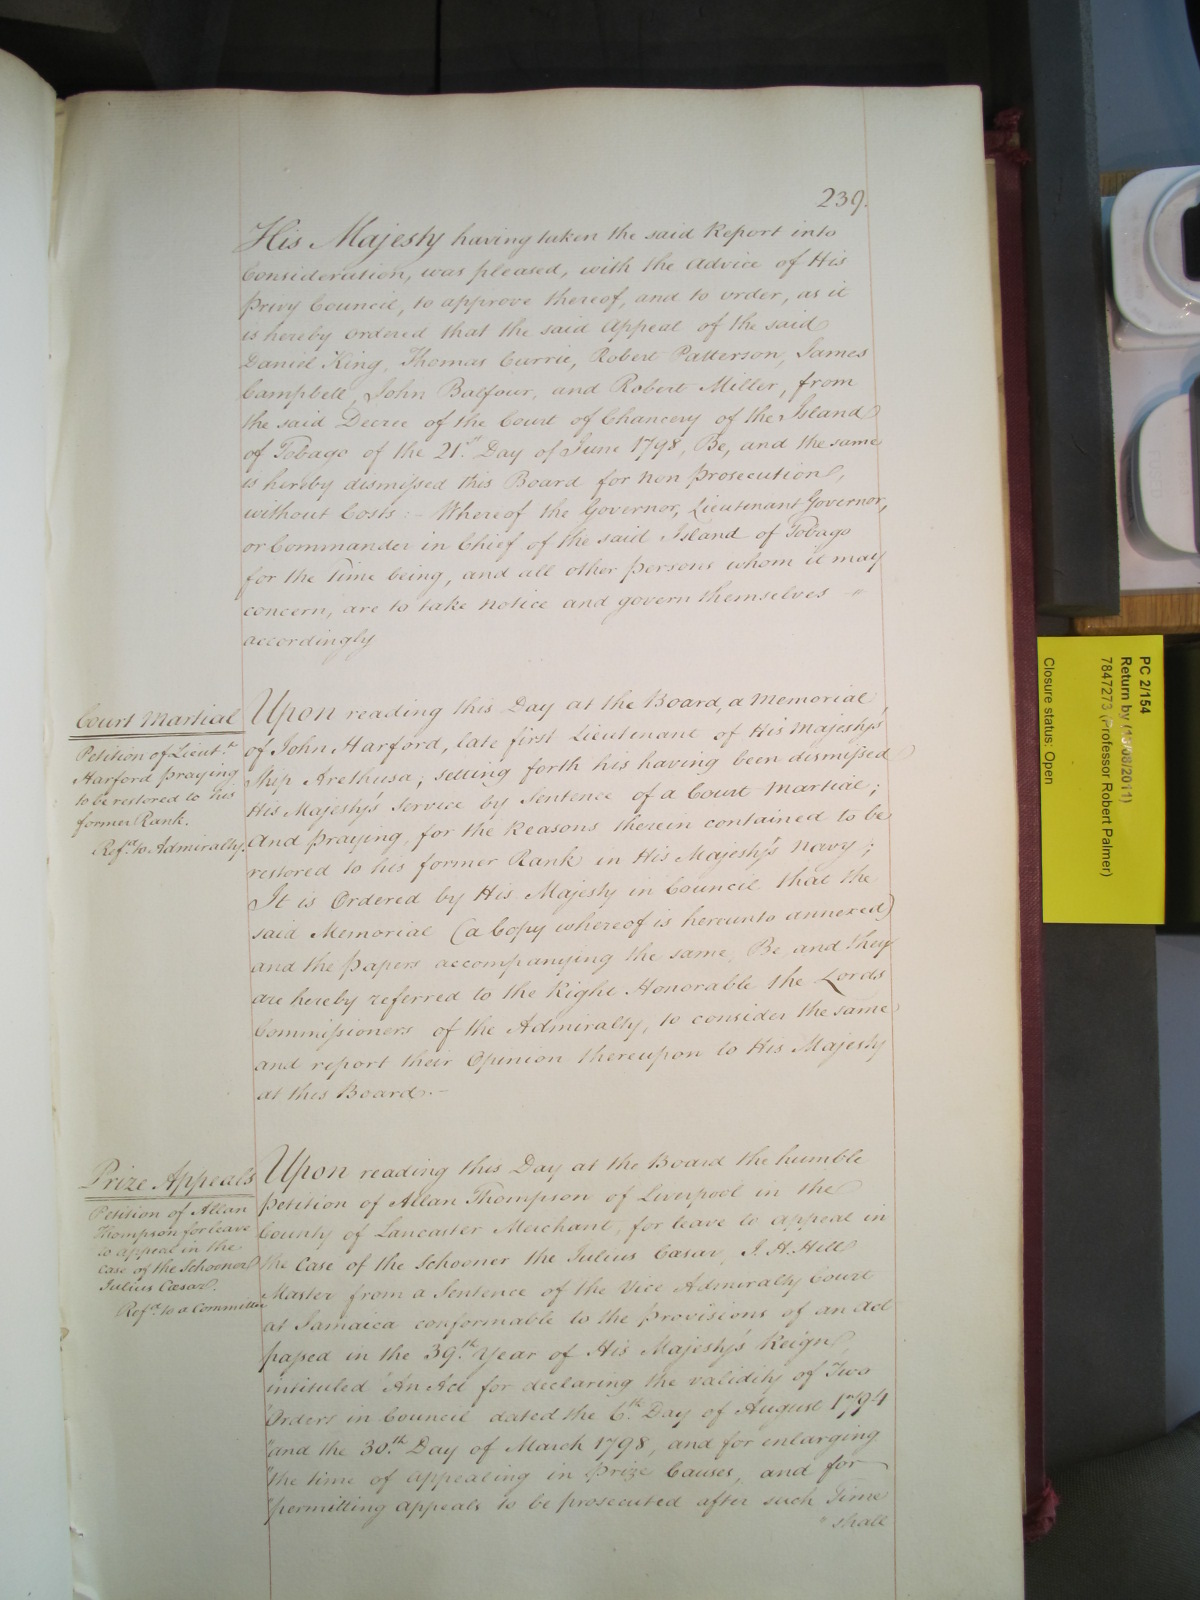 239.
His Majesty having taken the said Report into
Consideration, was pleased, with the Advice of His
Privy Council, to approve thereof, and to order, as it
is hereby ordered that the said Appeal of the said
Daniel King, Thomas Currie, Robert Patterson, James
Campbell, John Balfour, and Robert Miller, from
the said Decree of the Court of Chancery of the Island
of Tobago of the 21st Day of June 1798, Be, and the same
is hereby dismissed this Board for non Prosecution,
without Costs:- Whereof the Governor, Lieutenant Governor,
or Commander in Chief of the said Island of Tobago
for the Time being, and all other Persons whom it may
concern, are to take notice and govern themselves
accordingly
Court Martial
Petition of Lieut.t
Harford praying
to be restored to his
former Rank.
Ref.d to Admiralty.
Upon reading this Day at the Board, a Memorial
of John Harford, late first Lieutenant of His Majesty's
Ship Arethusa; setting forth his having been dismissed
His Majesty's Service by Sentence of a Court Martial;
And praying, for the Reasons therein contained to be
restored to his former Rank in His Majesty's Navy;
It is Ordered by His Majesty in Council that the
said Memorial (a Copy whereof is hereunto annexed)
and the papers accompanying the same, Be, and they
are hereby referred to the Right Honorable the Lords
Commissioners of the Admiralty, to consider the same
and report their Opinion thereupon to His Majesty
at this Board.-
Prize Appeals
Petition of Allan
Thompson for leave
to appeal in the
case of the Schooner
Julius Cæsar.
Ref.d to a Committee
Upon reading this Day at the Board the humble
Petition of Allan Thompson of Liverpool in the
County of Lancaster Merchant, for leave to appeal in
the Case of the Schooner the Julius Cæsar, J. H. Hill
Master from a Sentence of the Vice Admiralty Court
at Jamaica conformable to the provisions of an Act
passed in the 39.th Year of His Majesty's Reign,
intituled "An Act for declaring the validity of Two
"Orders in Council dated the 6.th Day of August 1794
"and the 30.th Day of March 1798, and for enlarging
"the time of appealing in Prize Causes, and for
"permitting appeals to be prosecuted after such Time
"shall
PC 2/154
Return by (13/08/2011)
7847273 (Professor Robert Palmer)
Closure status: Open